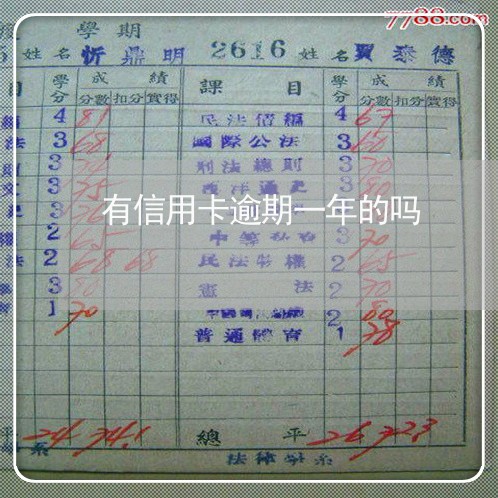 7788.com
學期
姓名 忻鼎明 2616 姓名 賈泰德
目 學分 成績 課目 學分 成績
分數 扣分 實得 分數 扣分 實得
4 81 民法債編 4 67
法 3 68 國際公法 3 60
3 刑法總則 3 70
3 75 西洋通史 3 80
有信用卡逾期一年的吗
2 65 3 70
法 2 68 68 民法物權 2 65
3 80 憲法 2 70
1 70 2 80
普通體育 1 78
平 24 74.1 總平 26 72.3
系 法律學系